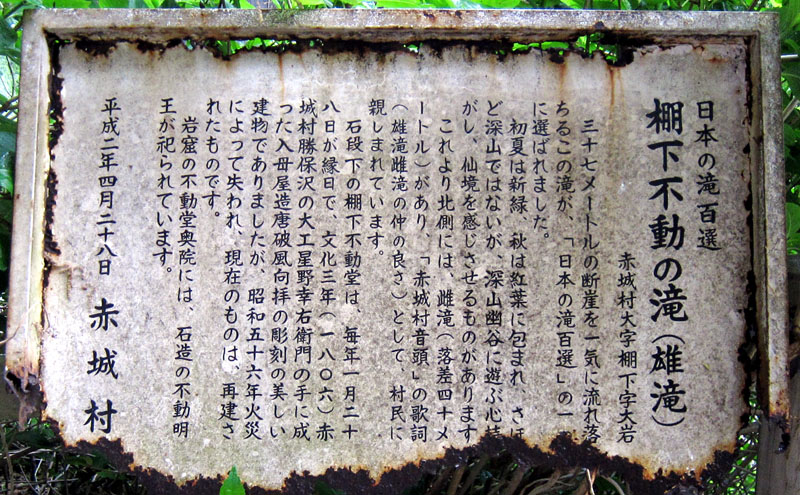 日本の滝百選
棚下不動の滝（雄滝）
赤城村大字棚下字大岩
三十七メートルの断崖を一気に流れ落
ちるこの滝が、「日本の滝百選」の一
に選ばれました。
初夏は新緑、秋は紅葉に包まれ、さほ
ど深山ではないが、深山幽谷に遊ぶ心持
がし、仙境を感じさせるものがあります
これより北側には、雌滝（落差四十メ
ートル）があり、「赤城村音頭」の歌詞
（雄滝雌滝の仲の良さ）として、村民に
親しまれています。
石段下の棚下不動堂は、毎年一月二十
八日が縁日で、文化三年（一八〇六）赤
城村勝保沢の大工星野幸右衛門の手に成
った入母屋造唐破風向拝の彫刻の美しい
建物でありましたが、昭和五十六年火災
によって失われ、現在のものは、再建さ
れたものです。
岩窟の不動堂奥院には、石造の不動明
王が祀られています。
平成二年四月二十八日　赤城村